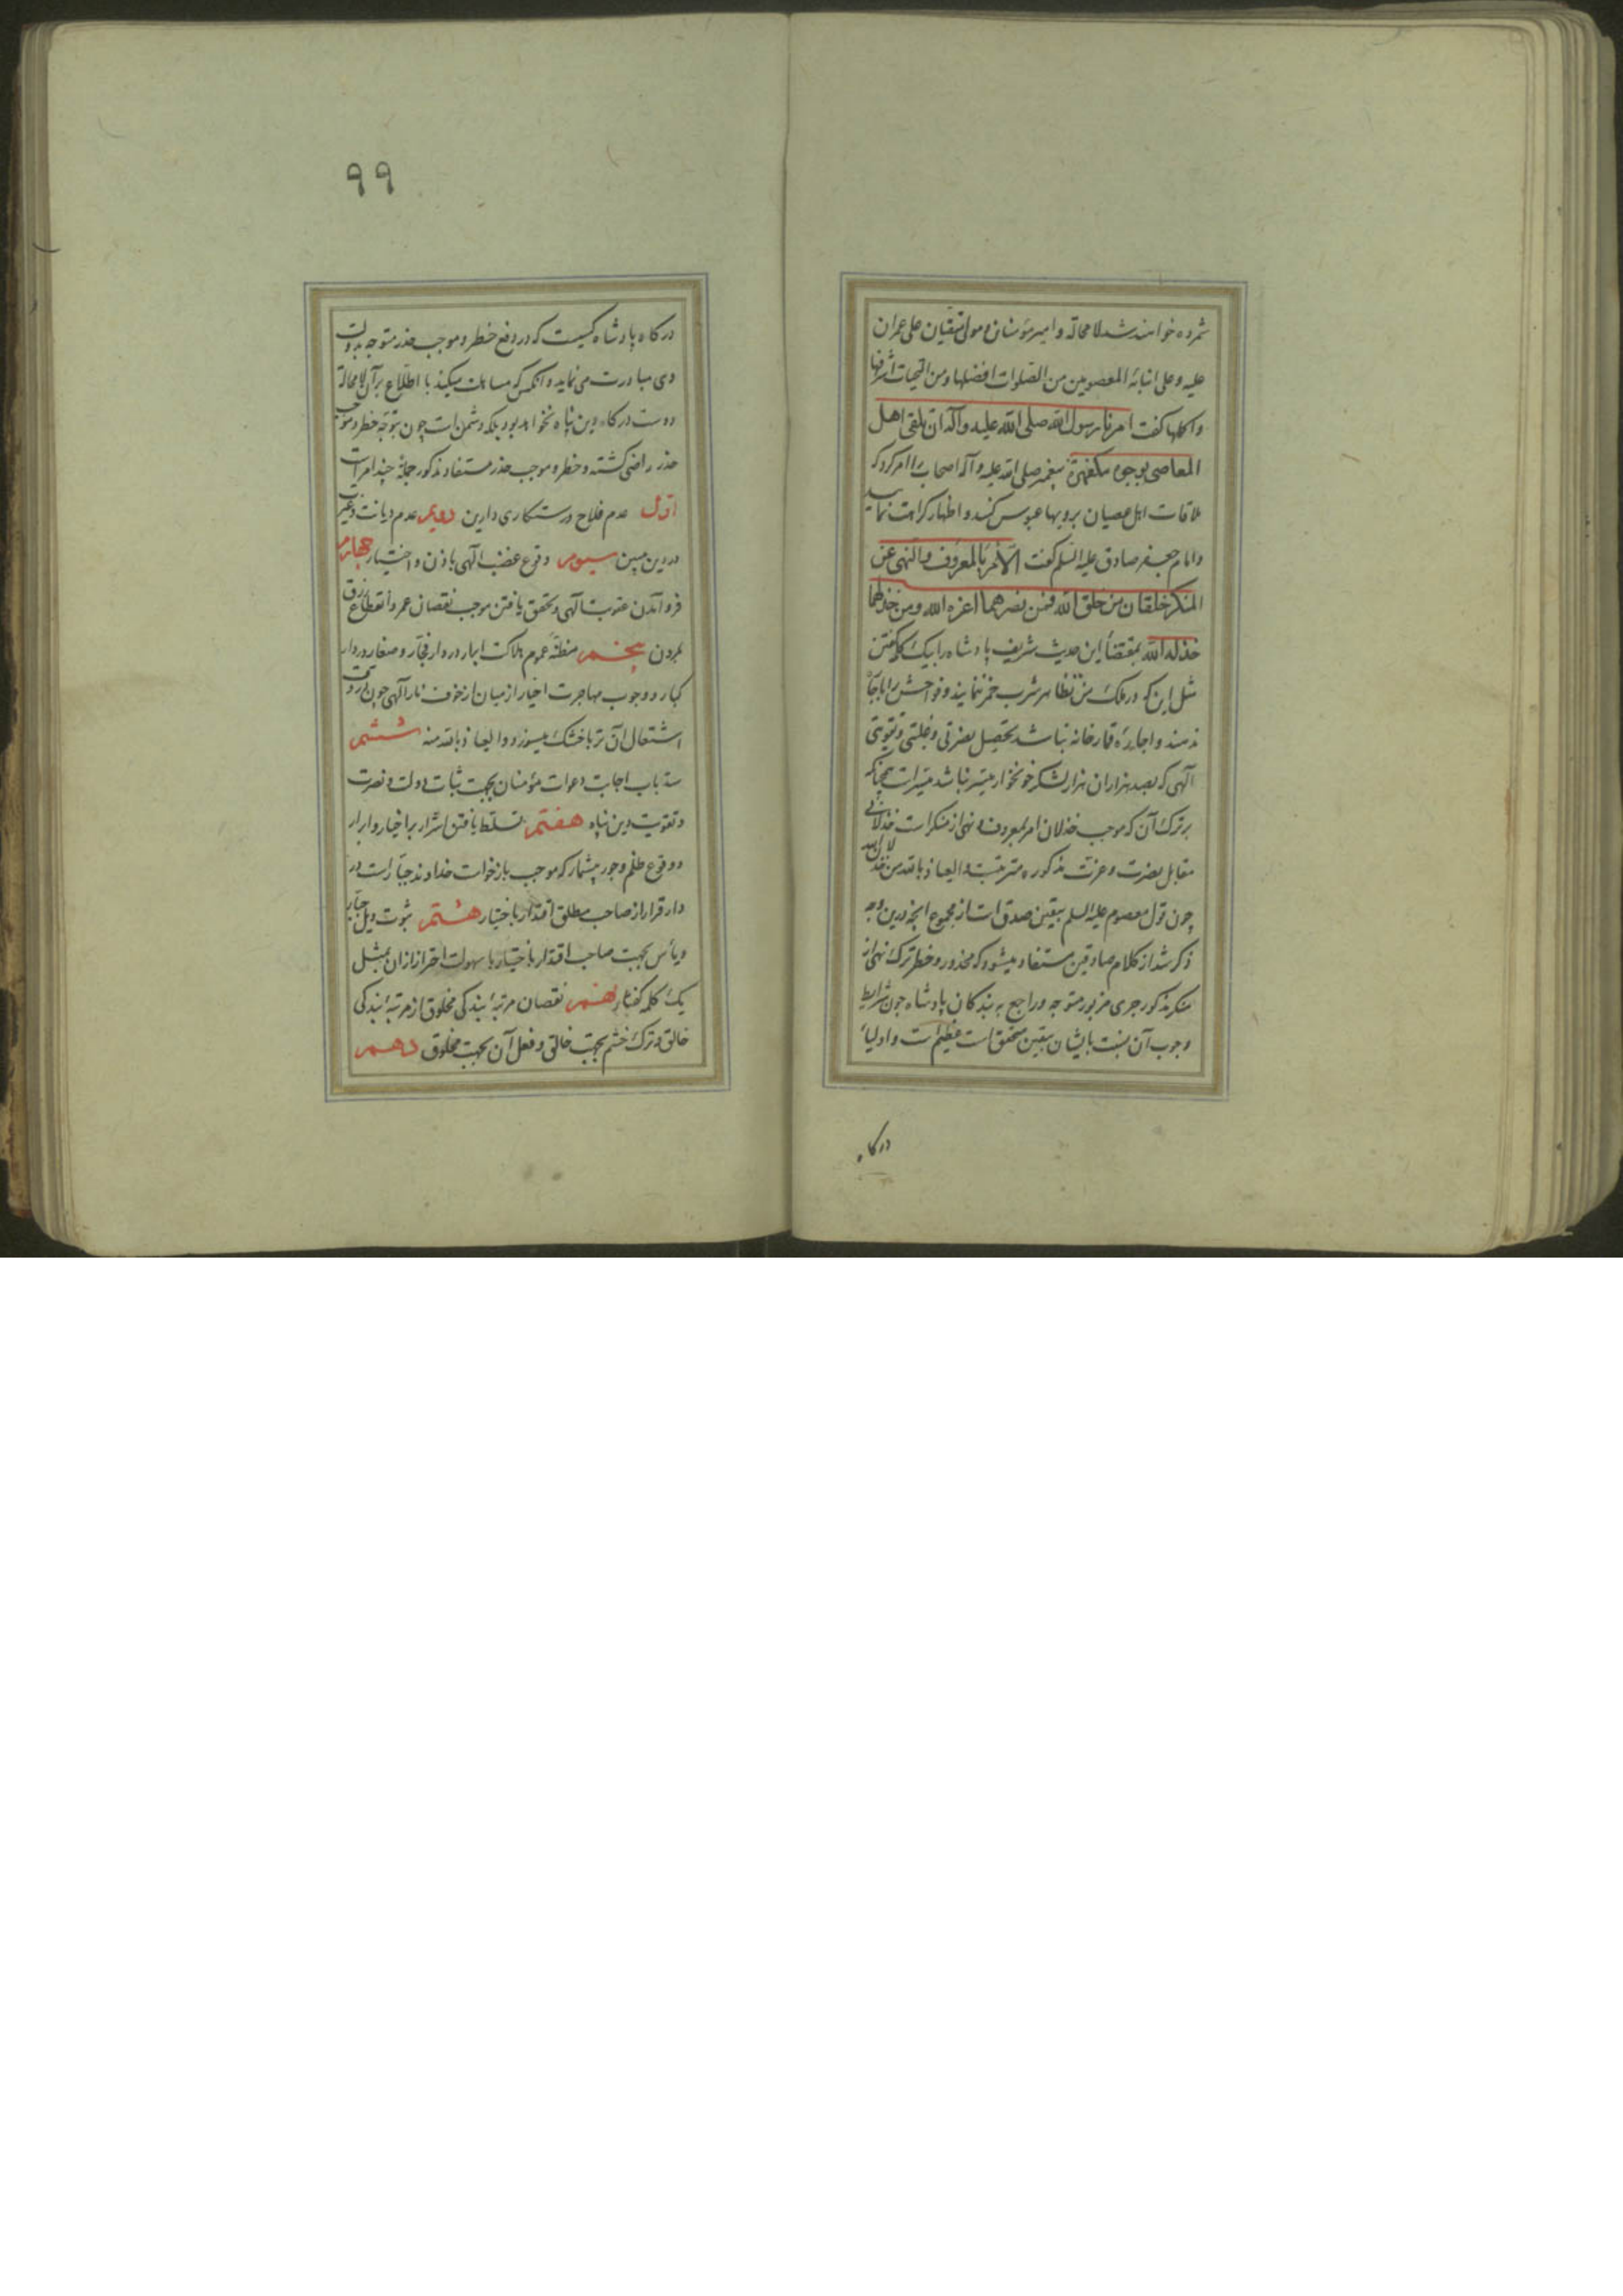 شمرده خواهند شد لا محالة و امیر مؤمنان و مولی متقیان علی عمران
علیه و علی ابنائه المعصومین من الصلوات افضلها و من التحیات اشرفها
و اکملها گفت امرنا رسول الله صلی الله علیه و آله ان نلقی اهل
المعاصی بوجوه مکفهرة پیغمبر صلی الله علیه و آله اصحاب را امر کرد که
ملاقات اهل عصیان برویها عبوس کنند و اظهار کراهت نمایند
و امام جعفر صادق علیه السلم گفت الامر بالمعروف و النهی عن
المنکر خلقان من خلق الله فمن نصرهما اعزه الله و من خذلهما
خذله الله بمقتضاء این حدیث شریف پادشاه را بیک کلمه گفتن
مثل این که در ملک من تظاهر شرب خمر ننمایند و فواحش را جا
ندهند و اجاره قمارخانه نباشد تحصیل نصرتی و تقویتی
الهی که بصد هزاران هزار لشکر خونخوار میسر نباشد میسر است چنانکه
بر ترک آن که موجب خذلان امر بمعروف و نهی از منکر است خذلانی
مقابل نصرت و عزت مذکوره مترتبست و العیاذ بالله من خذلان الله
چون قول معصوم علیه السلم بیقین صدق است از مجموع آنچه درین وجه
ذکر شد از کلام صادقین مستفاد میشود که محذور و خطر ترک نهی از
منکر مذکور جری مزبور متوجه و راجع به بندکان پادشاه چون شرایط
وجوب آن نسبت بایشان بیقین متحقق است عظیم است و اولیاء
درکاه
۹۹
درکاه پادشاه کیست که در دفع خطر و موجب حذر متوجه بدولت
وی مبادرت می نماید و آنکس که مساهلت میکند با اطلاع بر آن لا محالة
دوست درکاه دین پناه نخواهد بود بلکه دشمن است چون بتوجه خطر و موجب
حذر راضی کشته و خطر و موجب حذر مستفاد مذکور جملة چند امر است
اول عدم فلاح و رستکاری دارین دویم عدم دیانت و غیرت
در دین مبین سیوم وقوع غضب الهی باذن و اختیار چهارم
فرو آمدن عقوبت الهی و تحقق یافتن موجب نقصان عمر و انقطاع رزق
بمردن پنجم مظنه عموم هلاکت ابرار در دار فجار و صغار در دار
کبار و وجوب مهاجرت اخیار از میان از خوف نار الهی چون در وقت
اشتعال آن تر با خشک میسوزد و العیاذ بالله منه ششم
سد باب اجابت دعوات مؤمنان بجهت ثبات دولت و نصرت
و تقویت دین پناه هفتم تسلط یافتن اشرار بر اخیار و ابرار
و وقوع ظلم و جور بیشمار که موجب بازخواست خداوند جبار است در
دار قرار از صاحب مطلق اقتدار با اختیار هشتم ثبوت ویل جبار
و یأس بجهت صاحب اقتدار با اختیار با سهولت احتراز از ان بمثل
یک کلمه گفتار نهم نقصان مرتبه بندکی مخلوق از مرتبه بندکی
خالق و ترک خشم بجهت خالق و فعل آن بجهت مخلوق دهم